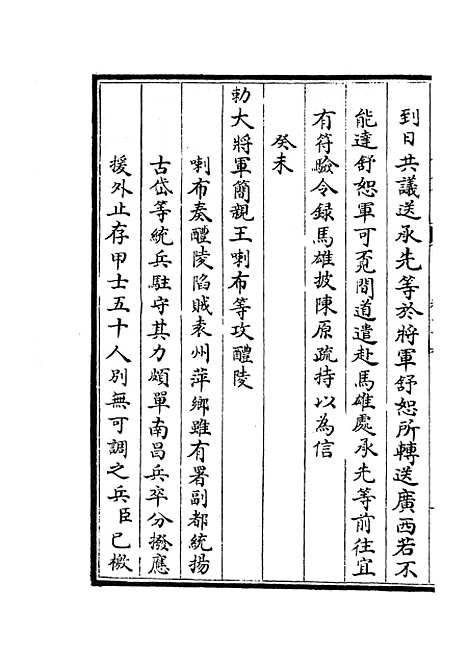 到日共議送承先等於將軍舒恕所轉送廣西若不
能達舒恕軍可覔間道遣赴馬雄處承先等前往宜
有符驗令録馬雄披陳原疏持以為信
癸未
勅大將軍簡親王喇布等攻醴陵
喇布奏醴陵陷賊袁州萍鄉雖有署副都統揚
古岱等統兵駐守其力頗單南昌兵卒分撥應
援外止存甲士五十人別無可調之兵臣已檄